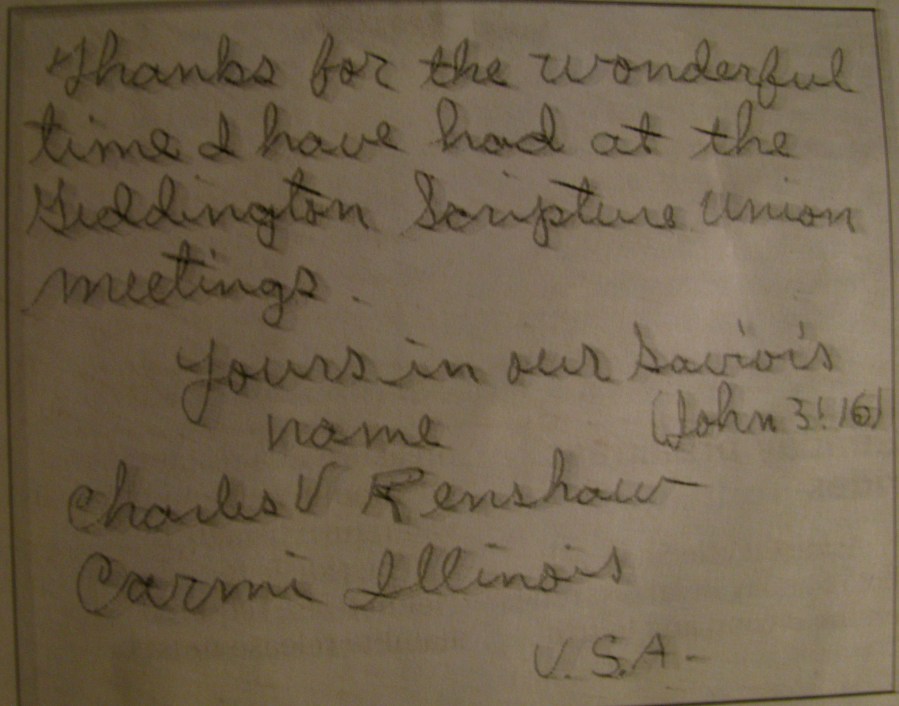 Thanks for the wonderful
time I have had at the
Geddington Scripture Union
meetings.
Yours in our Savior's
name (John 3:16)
Charles V Renshaw
Carmi Illinois
U.S.A-